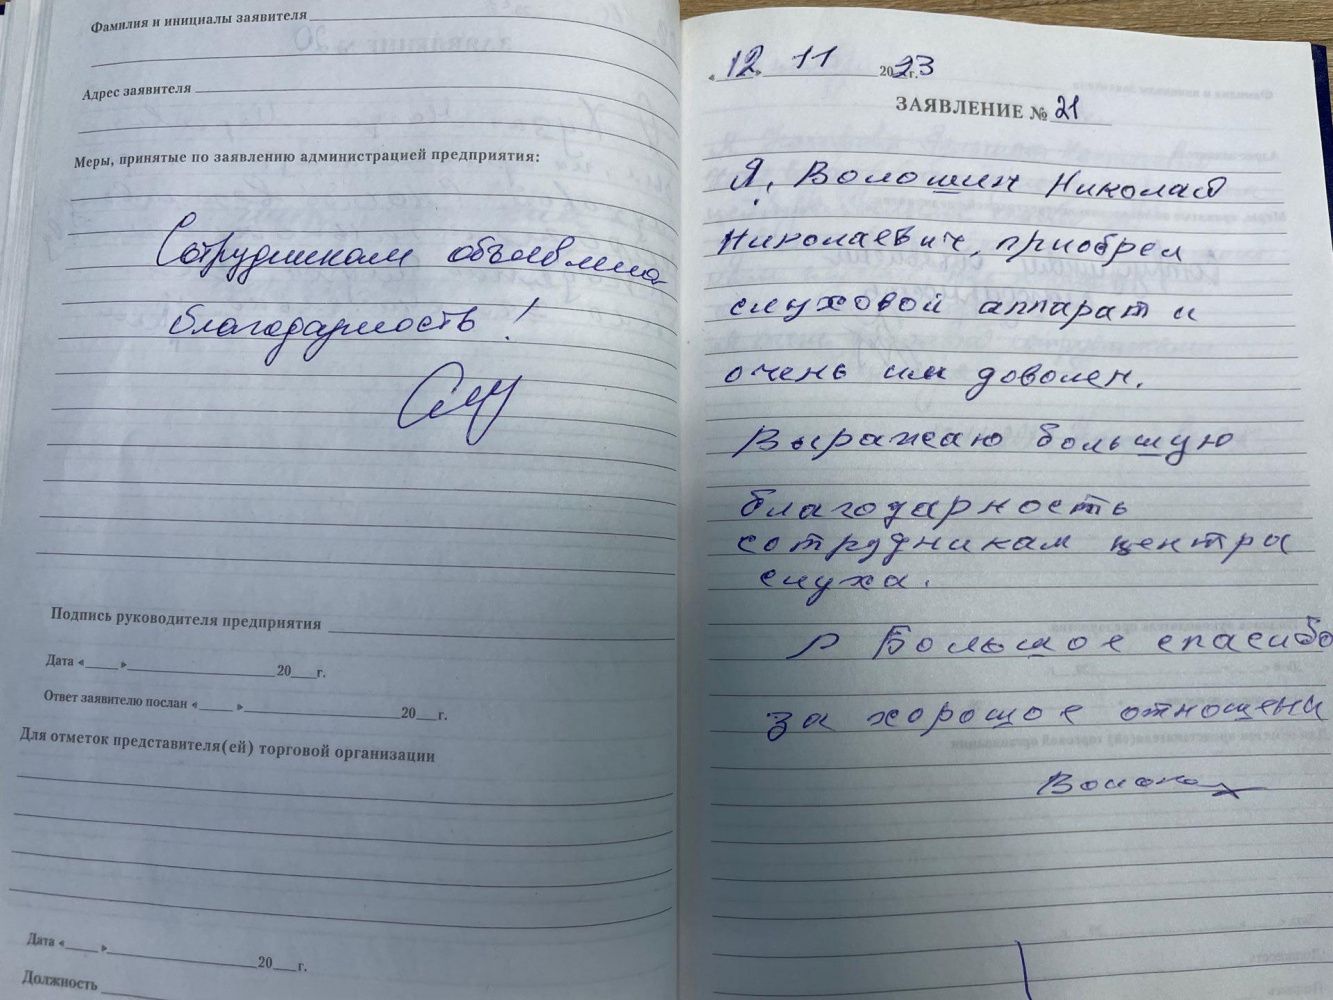 Фамилия и инициалы заявителя
Адрес заявителя
Меры, принятые по заявлению администрацией предприятия:
Сотрудникам объявлена
благодарность!
Подпись руководителя предприятия
Дата « » 20 г.
Ответ заявителю послан « » 20 г.
Для отметок представителя(ей) торговой организации
Дата « » 20 г.
Должность
« 12 » 11 2023 г.
ЗАЯВЛЕНИЕ № 21
Я, Волошин Николай
Николаевич, приобрел
слуховой аппарат и
очень им доволен.
Выражаю большую
благодарность
сотрудникам центра
слуха.
Большое спасибо
за хорошое отношени